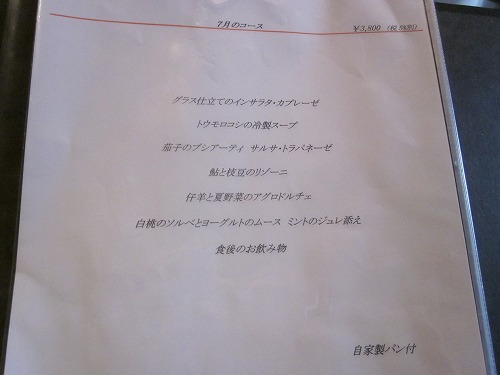 7月のコース
¥3,800 (税 特別)
グラス仕立てのインサラタ・カプレーゼ
トウモロコシの冷製スープ
茄子のブシアーティ サルサ・トラパネーゼ
鮎と枝豆のリゾーニ
仔羊と夏野菜のアグロドルチェ
白桃のソルベとヨーグルトのムース ミントのジュレ添え
食後のお飲み物
自家製パン付